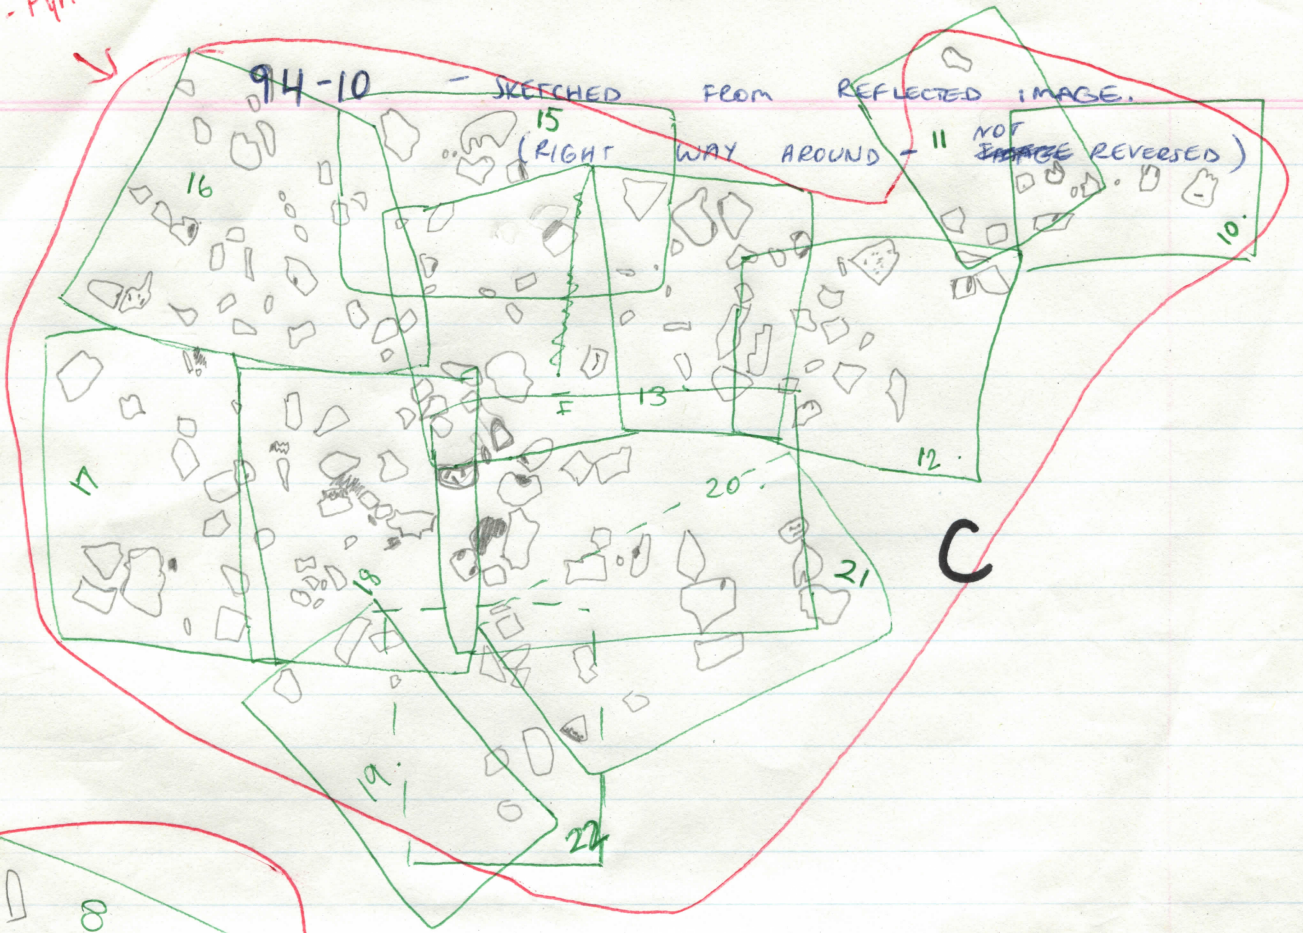 94-10 - SKETCHED FROM REFLECTED IMAGE.
(RIGHT WAY AROUND - NOT REVERSED)
15
11
16
10.
13
12.
17
20.
C
21
18
19.
22
8